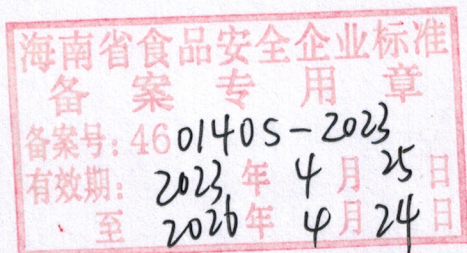 海南省食品安全企业标准
备案专用章
备案号：460140S-2023
有效期：2023年4月25日
至2026年4月24日